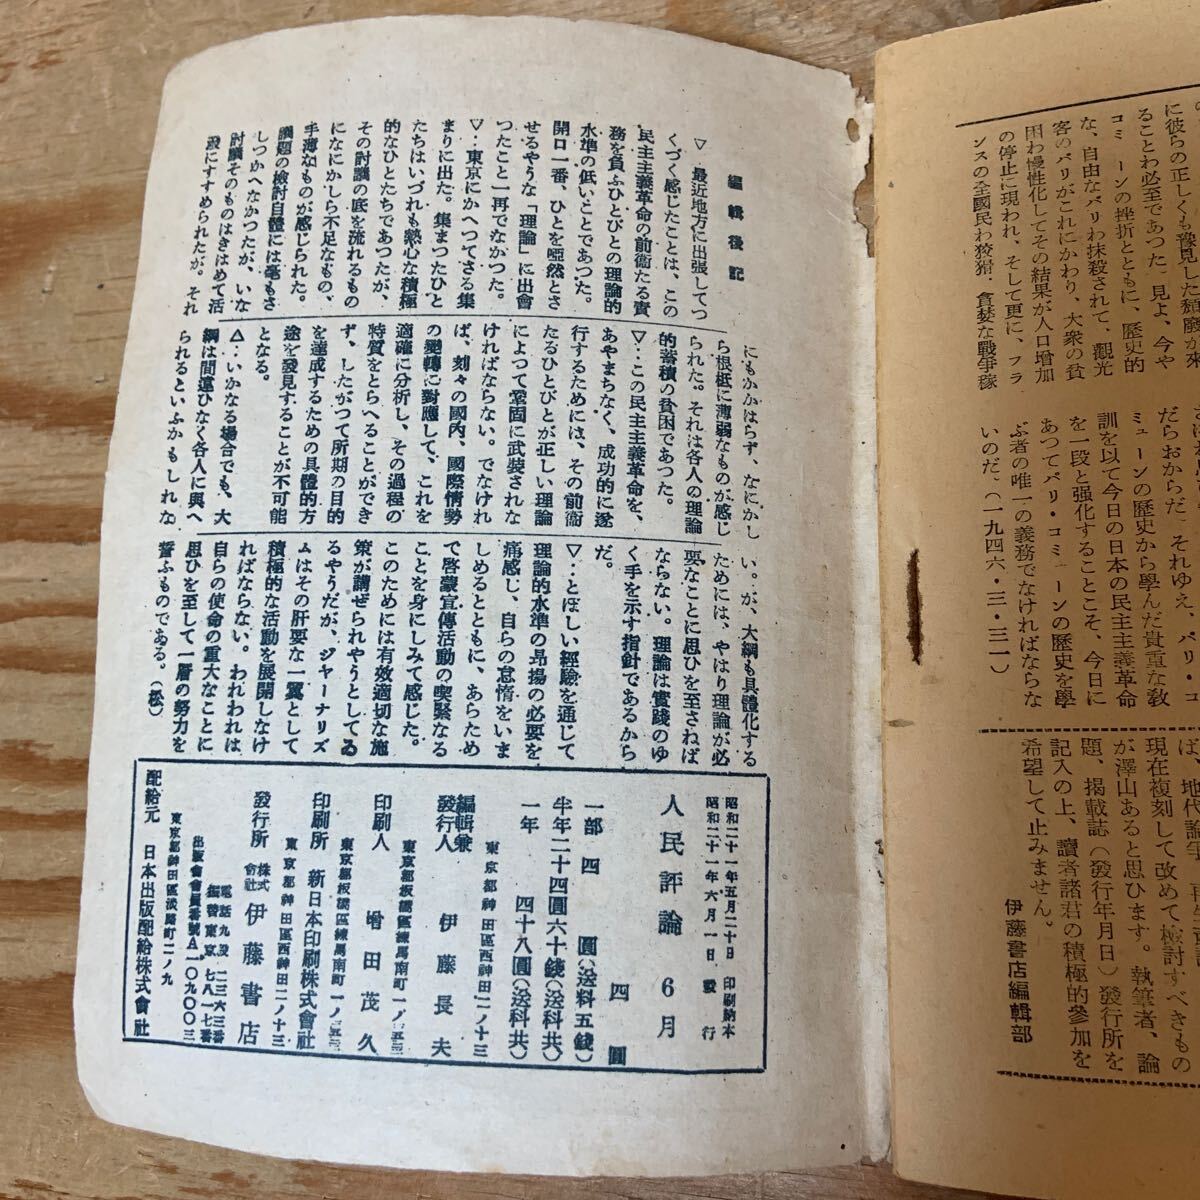 の、
に彼らの正しくも豫見した頽廢が來
ることわ必至であつた。見よ、今や
コミーンの挫折とともに、歷史的
な、自由なパリわ抹殺されて、觀光
客のパリがこれにかわり、大衆の貧
困わ慢性化してその結果が人口增加
の停止に現われ、そして更に、フラ
ンスの全國民わ狡猾、貪婪な戰爭稼
だらおからだ。それゆえ、パリ・コ
ミューンの歷史から學んだ貴重な敎
訓を以て今日の日本の民主主義革命
を一段と强化することこそ、今日に
あつてパリ・コミーンの歷史を學
ぶ者の唯一の義務でなければならな
いのだ。(一九四六・三・三一)
ば、地代論爭、再生產論
現在複刻して改めて檢討すべきもの
が澤山あると思ひます。執筆者、論
題、揭載誌(發行年月日)發行所を
記入の上、讀者諸君の積極的參加を
希望して止みません。
伊藤書店編輯部
編輯後記
▽ 最近地方に出張してつ
くづく感じたことは、この
民主主義革命の前衞たる實
務を負ふひとびとの理論的
水準の低いことであつた。
開口一番、ひとを啞然とさ
せるやうな「理論」に出會
つたこと一再でなかつた。
▽‥東京にかへつてさる集
まりに出た。集まつたひと
たちはいづれも熱心な積極
的なひとたちであつたが、
その討議の底を流れるもの
になにかしら不足なもの、
手薄なものが感じられた。
議題の檢討自體には毫もさ
しつかへなかつたが、いな
討議そのものはきはめて活
潑にすすめられたが、それ
にもかかはらず、なにかし
ら根柢に薄弱なものが感じ
られた。それは各人の理論
的蓄積の貧困であつた。
▽‥この民主主義革命を、
あやまちなく、成功的に遂
行するためには、その前衞
たるひとびとが正しい理論
によつて鞏固に武裝されな
ければならない。でなけれ
ば、刻々の國內、國際情勢
の變轉に對應して、これを
適確に分析し、その過程の
特質をとらへることができ
ず、したがつて所期の目的
を達成するための具體的方
途を發見することが不可能
となる。
△‥いかなる場合でも、大
綱は間違ひなく各人に與へ
られるといふかもしれな
い。が、大綱も具體化する
ためには、やはり理論が必
要なことに思ひを至さねば
ならない。理論は實踐のゆ
く手を示す指針であるから
だ。
▽‥とぼしい經驗を通じて
理論的水準の昂揚の必要を
痛感し、自らの怠惰をいま
しめるとともに、あらため
て啓蒙宣傳活動の喫緊なる
ことを身にしみて感じた。
このためには有效適切な施
策が講ぜられやうとしてゐ
るやうだが、ジャーナリズ
ムはその肝要な一翼として
積極的な活動を展開しなけ
ればならない。われわれは
自らの使命の重大なことに
思ひを至して一層の努力を
誓ふものである。(松)
昭和二十一年五月二十日 印刷納本
昭和二十一年六月一日 發行
人民評論 6月
四圓
一部 四圓(送料五錢)
半年二十四圓六十錢(送料共)
一年 四十八圓(送料共)
東京都神田區西神田二ノ十三
編輯兼
發行人 伊藤長夫
東京都板橋區練馬南町一ノ三五三二
印刷人 增田茂久
東京都板橋區練馬南町一ノ三五三二
印刷所 新日本印刷株式會社
東京都神田區西神田二ノ十三
發行所 株式會社 伊藤書店
電話九段 二三六三番
振替東京 七八一七番
出版會會員番號A一〇九〇〇三
東京都神田區淡路町二ノ九
配給元 日本出版配給株式會社